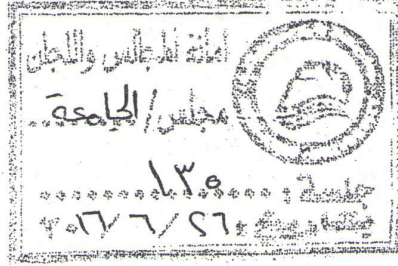 أمانة المجالس واللجان
مجلس/الجامعة
جلسة: ١٣٥
بتاريخ: ٢٦/٦/٢٠١٦